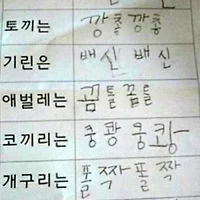 토끼는 깡총깡총
기린은 배신 배신
애벌레는 꿈틀꿈틀
코끼리는 쿵쾅 쿵쾅
개구리는 폴짝 폴짝